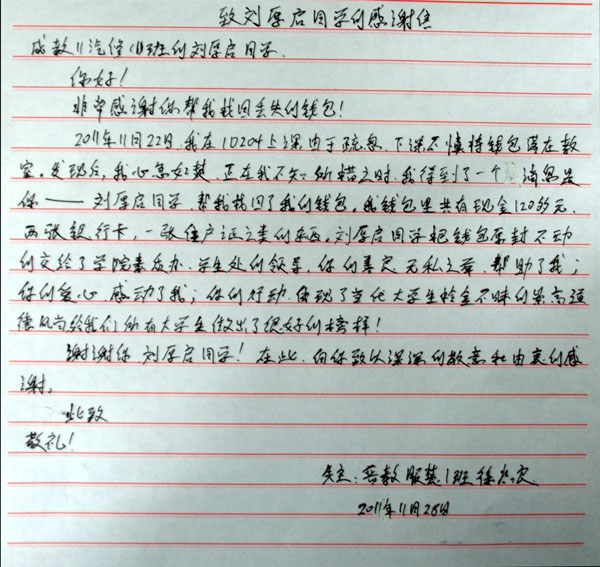 致刘厚启同学的感谢信
成教11汽修(1)班的刘厚启同学.
你好!
非常感谢你帮我找回丢失的钱包!
2011年11月22日,我在10204上课由于疏忽,下课不慎将钱包落在教
室,发现后,我心急如焚.正在我不知所措之时.我得到了一个 消息是
你——刘厚启同学.帮我找回了我的钱包,我钱包里共有现金120多元.
两张银行卡,一张住户证之类的东西,刘厚启同学把钱包原封不动
的交给了学院素质办.学生处的领导,你的善良 无私之举,帮助了我;
你的爱心,感动了我;你的行动.体现了当代大学生拾金不昧的崇高道
德风尚给我们所有大学生做出了很好的榜样!
谢谢你 刘厚启同学!在此,向你致以深深的敬意和由衷的感
谢,
此致
敬礼!
失主:普教服装1班徐
2011年11月28日